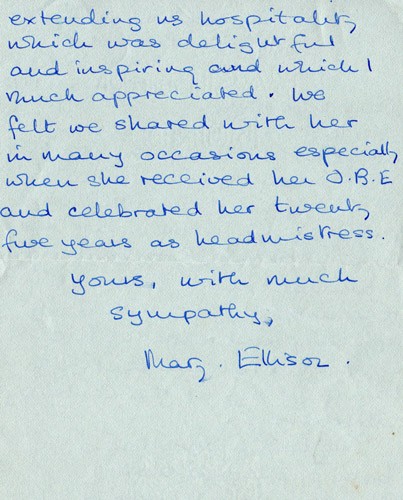 extending us hospitality
which was delightful
and inspiring and which I
much appreciated. We
felt we shared with her
in many occasions especially
when she received her O.B.E
and celebrated her twenty
five years as headmistress.
Yours, with much
sympathy,
Mary. Ellison.